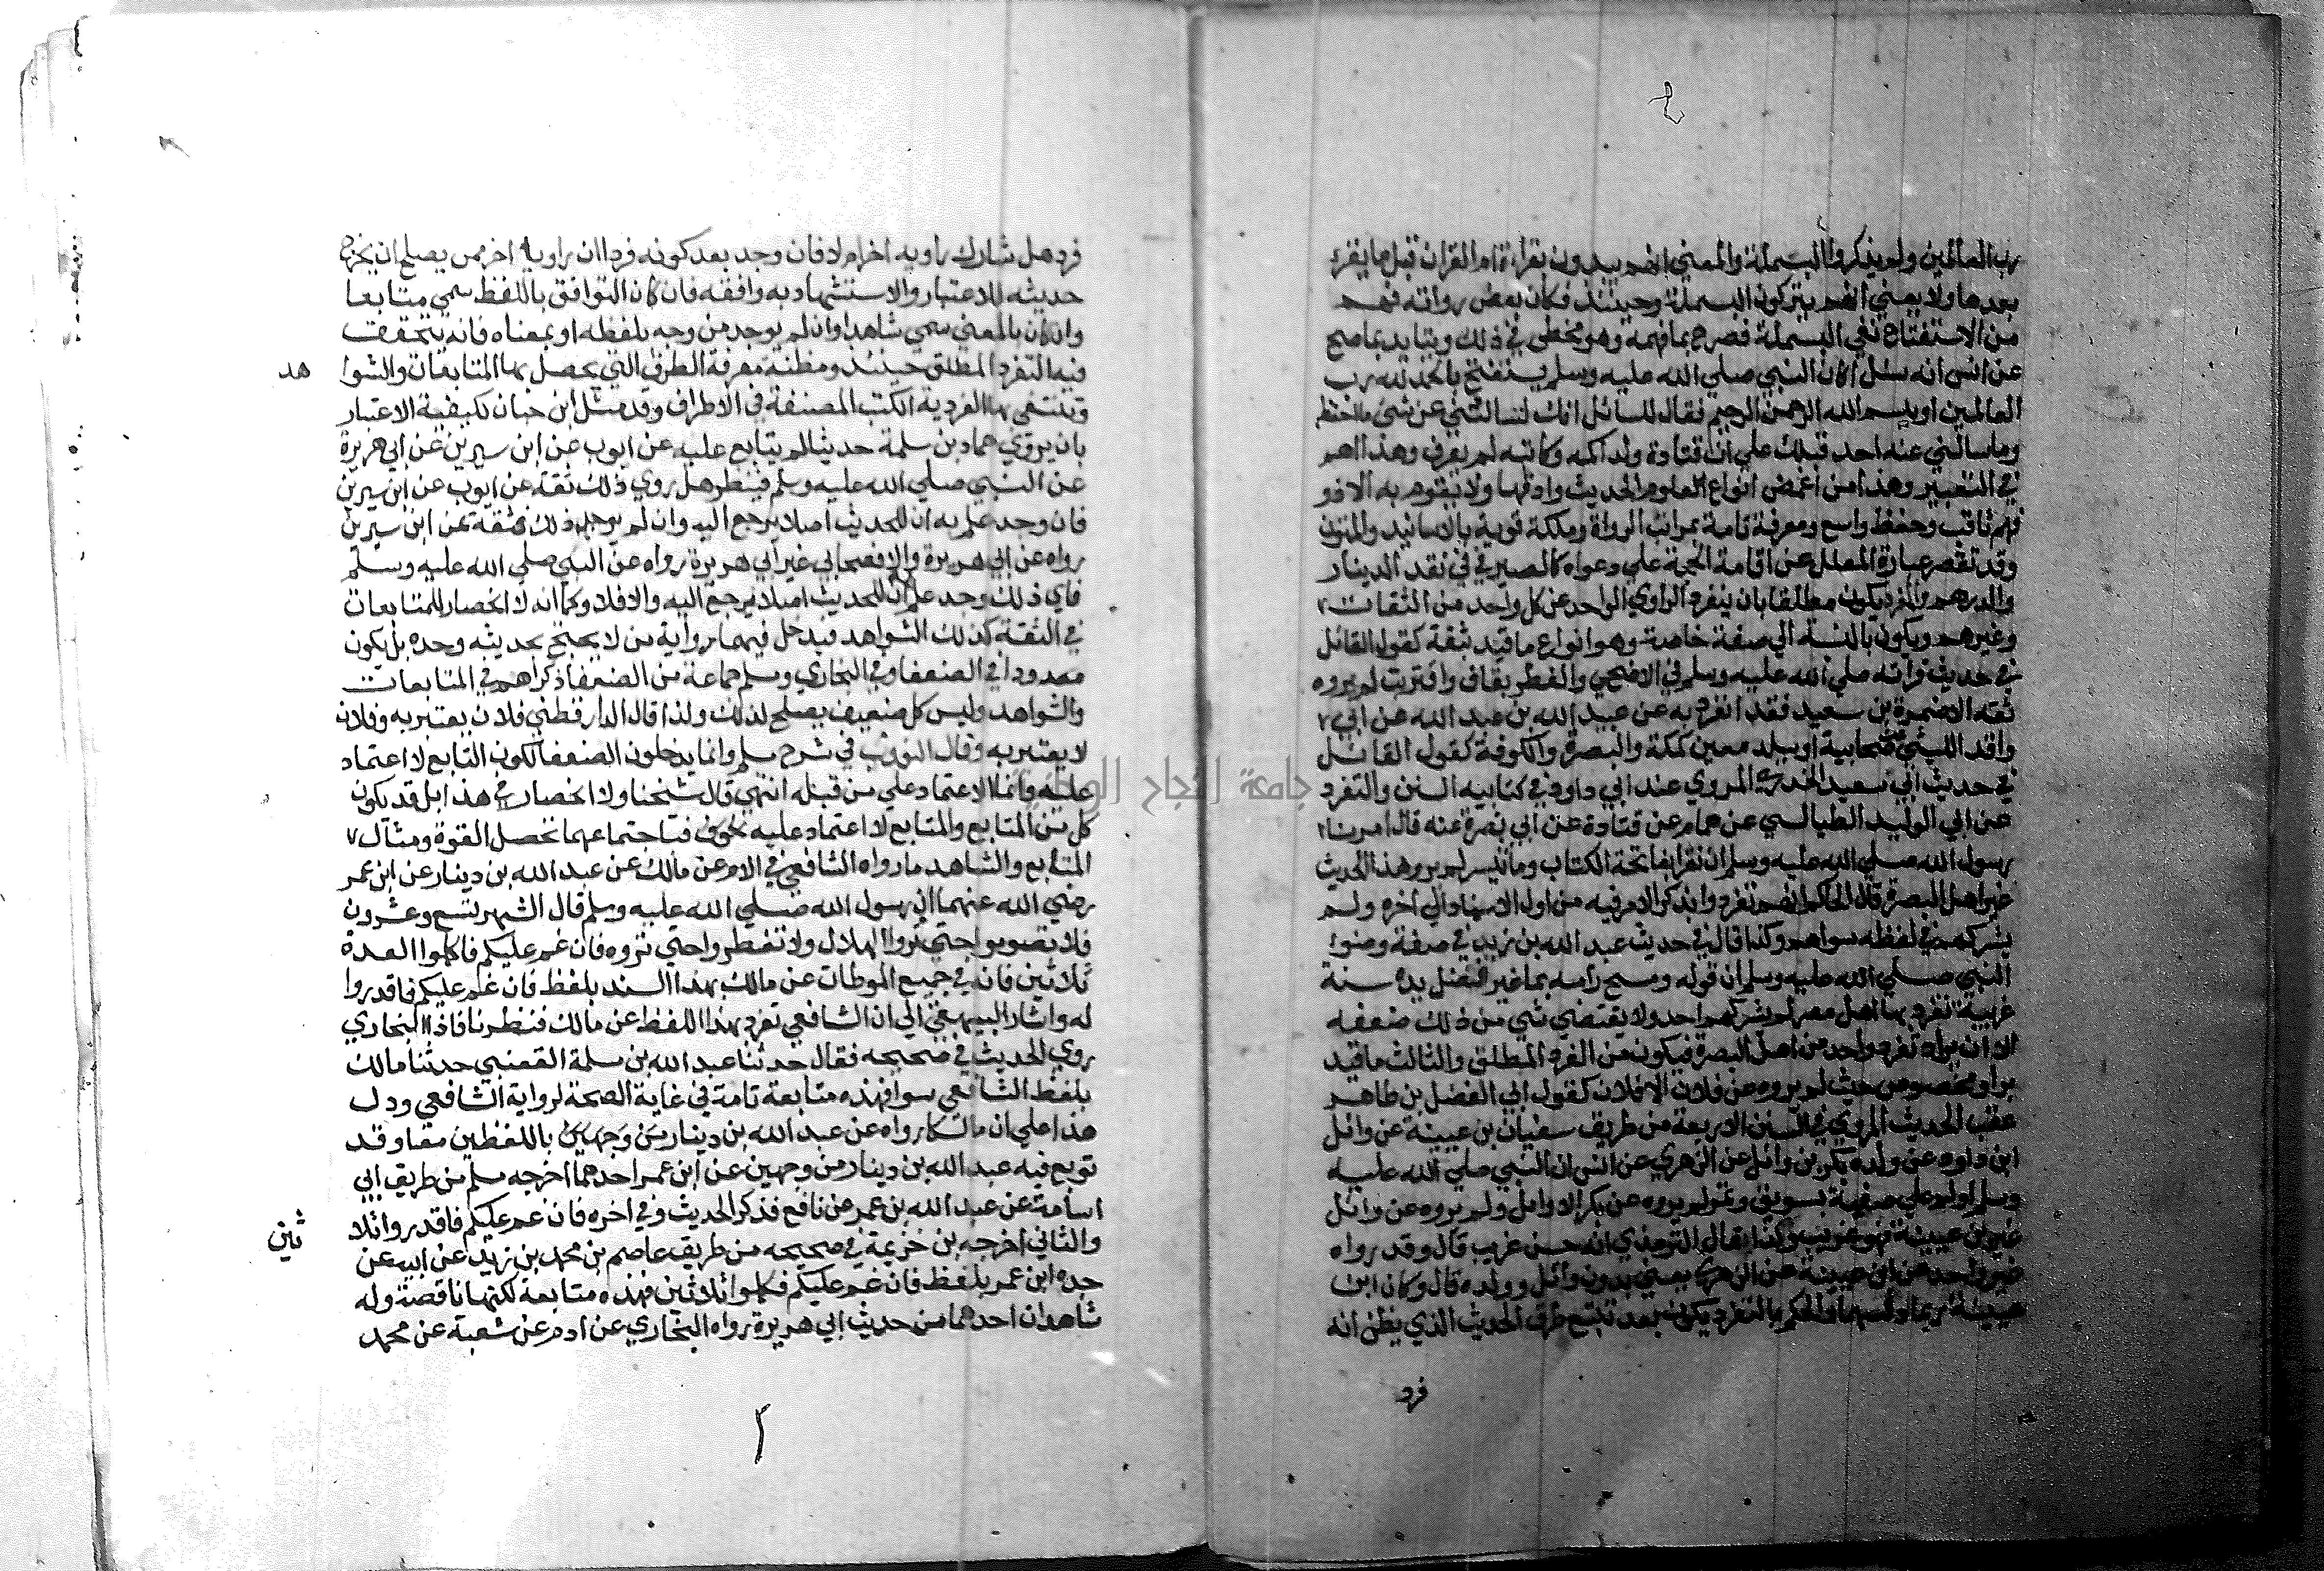 رب العالمين ولم يذكروا البسملة والمعني انهم يبدون بقراءة ام القران قبل ما يقرء
بعدها ولا يعني انهم يتركون البسملة وحينئذ فكان بعض رواته فهم
من الاستفتاح نفي البسملة فصرح بما فهمه وهو مخطي في ذلك ويتايد بما صح
عن انس انه سئل اكان النبي صلي الله عليه وسلم يستفتح بالحمد لله رب
العالمين او ببسم الله الرحمن الرحيم فقال للسائل انك لتسالني عن شئ ما احفظه
وما سالني عنه احد قبلك علي ان قتادة ولد اكمه وكاتبه لم يعرف وهذا اهم
في التعبير وهذا من اغمض انواع العلوم الحديث وادقها ولا يقوم به الا ذو
فهم ثاقب وحفظ واسع ومعرفة تامة بمراتب الرواة وملكة قوية بالاسانيد والمتون
وقد تقصر عبارة المعلل عن اقامة الحجة علي دعواه كالصيرفي في نقد الدينار
والدرهم والفرد يكون مطلقا بان ينفرد الراوي الواحد عن كل واحد من الثقات
وغيرهم ويكون بالنسبة الي صفة خاصة وهو انواع ما قيد بثقة كقول القائل
في حديث قراته صلي الله عليه وسلم في الاضحي والفطر بقاف واقتربت لم يروه
ثقة الا ضمرة بن سعيد فقد انفرد به عن عبيد الله بن عبد الله عن ابي
واقد الليثي صحابيه او ببلد معين كمكة والبصرة والكوفة كقول القائل
في حديث ابي سعيد الخدري المروي عند ابي داود في كتابيه السنن والتفرد
عن ابي الوليد الطيالسي عن همام عن قتادة عن ابي نضرة عنه قال امرنا
رسول الله صلي الله عليه وسلم ان نقرا بفاتحة الكتاب وما تيسر لم يرو هذا الحديث
غير اهل البصرة قال الحاكم انهم تفردوا بذكر الامر فيه من اول الاسناد الي اخره ولم
يشركهم في لفظه سواهم وكذا قال في حديث عبد الله بن زيد في صفة وضوء
النبي صلي الله عليه وسلم ان قوله ومسح راسه بما غير فضل يده سنة
غريبة تفرد بها اهل مصر لم يشركهم احد ولا يقتضي شي من ذلك ضعفه
الا ان يراد تفرد واحد من اهل البصرة فيكون من الفرد المطلق والثالث ما قيد
براو مخصوص حيث لم يروه عن فلان الا فلان كقول ابي الفضل بن طاهر
عقب الحديث المروي في السنن الاربعة من طريق سفيان بن عيينة عن وائل
ابن داود عن ولده بكر بن وائل عن الزهري عن انس ان النبي صلي الله عليه
وسلم اولم علي صفية بسويق وتمر لم يروه عن بكر الا وائل ولم يروه عن وائل
غير بن عيينة فهو غريب وكذا قال الترمذي انه حسن غريب قال وقد رواه
غير واحد عن ابن عيينة عن الزهري يعني بدون وائل وولده قال وكان ابن
عيينة ربما دلسهما والحكم بالتفرد يكون بعد تتبع طرق الحديث الذي يظن انه
فرد
فرد هل شارك راويه اخر ام لا فان وجد بعد كونه فردا ان راويه اخر ممن يصلح ان يخرج
حديثه للاعتبار والاستشهاد به وافقه فان كان التوافق باللفظ سمي متابعا
وان كان بالمعني سمي شاهدا وان لم يوجد من وجه بلفظه او بمعناه فانه يتحقق
فيه التفرد المطلق حينئذ ومظنة معرفة الطرق التي يحصل بها المتابعات والشوا هد
وتنتفي بها الفردية الكتب المصنفة في الاطراف وقد مثل ابن حبان لكيفية الاعتبار
بان يروي حماد بن سلمة حديثا لم يتابع عليه عن ايوب عن ابن سيرين عن ابي هريرة
عن النبي صلي الله عليه وسلم فينظر هل روي ذلك ثقة عن ايوب عن ابن سيرين
فان وجد علم به ان للحديث اصلا يرجع اليه وان لم يوجد ذلك فثقة عن ابن سيرين
رواه عن ابي هريرة والا فصحابي غير ابي هريرة رواه عن النبي صلي الله عليه وسلم
فاي ذلك وجد علم ان للحديث اصلا يرجع اليه والا فلا وكما انه لا انحصار للمتابعات
في الثقة كذلك الشواهد فيدخل فيهما رواية من لا يحتج بحديثه وحده بل يكون
معدودا في الضعفا وفي البخاري ومسلم جماعة من الضعفا ذكراهم في المتابعات
والشواهد وليس كل ضعيف يصلح لذلك ولذا قال الدارقطني فلان يعتبر به وفلان
لا يعتبر به وقال النووي في شرح مسلم وانما يدخلون الضعفا لكون التابع لا اعتماد
عليه وانما الاعتماد علي من قبله انتهي قال شيخنا ولا انحصار في هذا بل قد يكون
كل من المتابع والمتابع لا اعتماد عليه فباجتماعهما تحصل القوة ومثال
المتابع والشاهد ما رواه الشافعي في الام عن مالك عن عبد الله بن دينار عن ابن عمر
رضي الله عنهما ان رسول الله صلي الله عليه وسلم قال الشهر تسع وعشرون
فلا تصوموا حتي تروا الهلال ولا تفطروا حتي تروه فان غم عليكم فاكملوا العدة
ثلاثين فانه في جميع الموطات عن مالك بهذا السند بلفظ فان غم عليكم فاقدروا
له واشار البيهقي الي ان الشافعي تفرد بهذا اللفظ عن مالك فنظرنا فاذا البخاري
روي الحديث في صحيحه فقال حدثنا عبد الله بن مسلمة القعنبي حدثنا مالك
بلفظ الشافعي سوا فهذه متابعة تامة في غاية الصحة لرواية الشافعي ودل
هذا علي ان مالكا رواه عن عبد الله بن دينار من وجهين باللفظين معا وقد
توبع فيه عبد الله بن دينار من وجهين عن ابن عمر احدهما اخرجه مسلم من طريق ابي
اسامة عن عبد الله بن عمر عن نافع فذكر الحديث وفي اخره فان غم عليكم فاقدروا ثلا ثين
والثاني اخرجه بن خزيمة في صحيحه من طريق عاصم بن محمد بن زيد عن ابيه عن
جده ابن عمر بلفظ فان غم عليكم فكملوا ثلاثين فهذه متابعة لكنها ناقصة وله
شاهدان احدهما من حديث ابي هريرة رواه البخاري عن ادم عن شعبة عن محمد